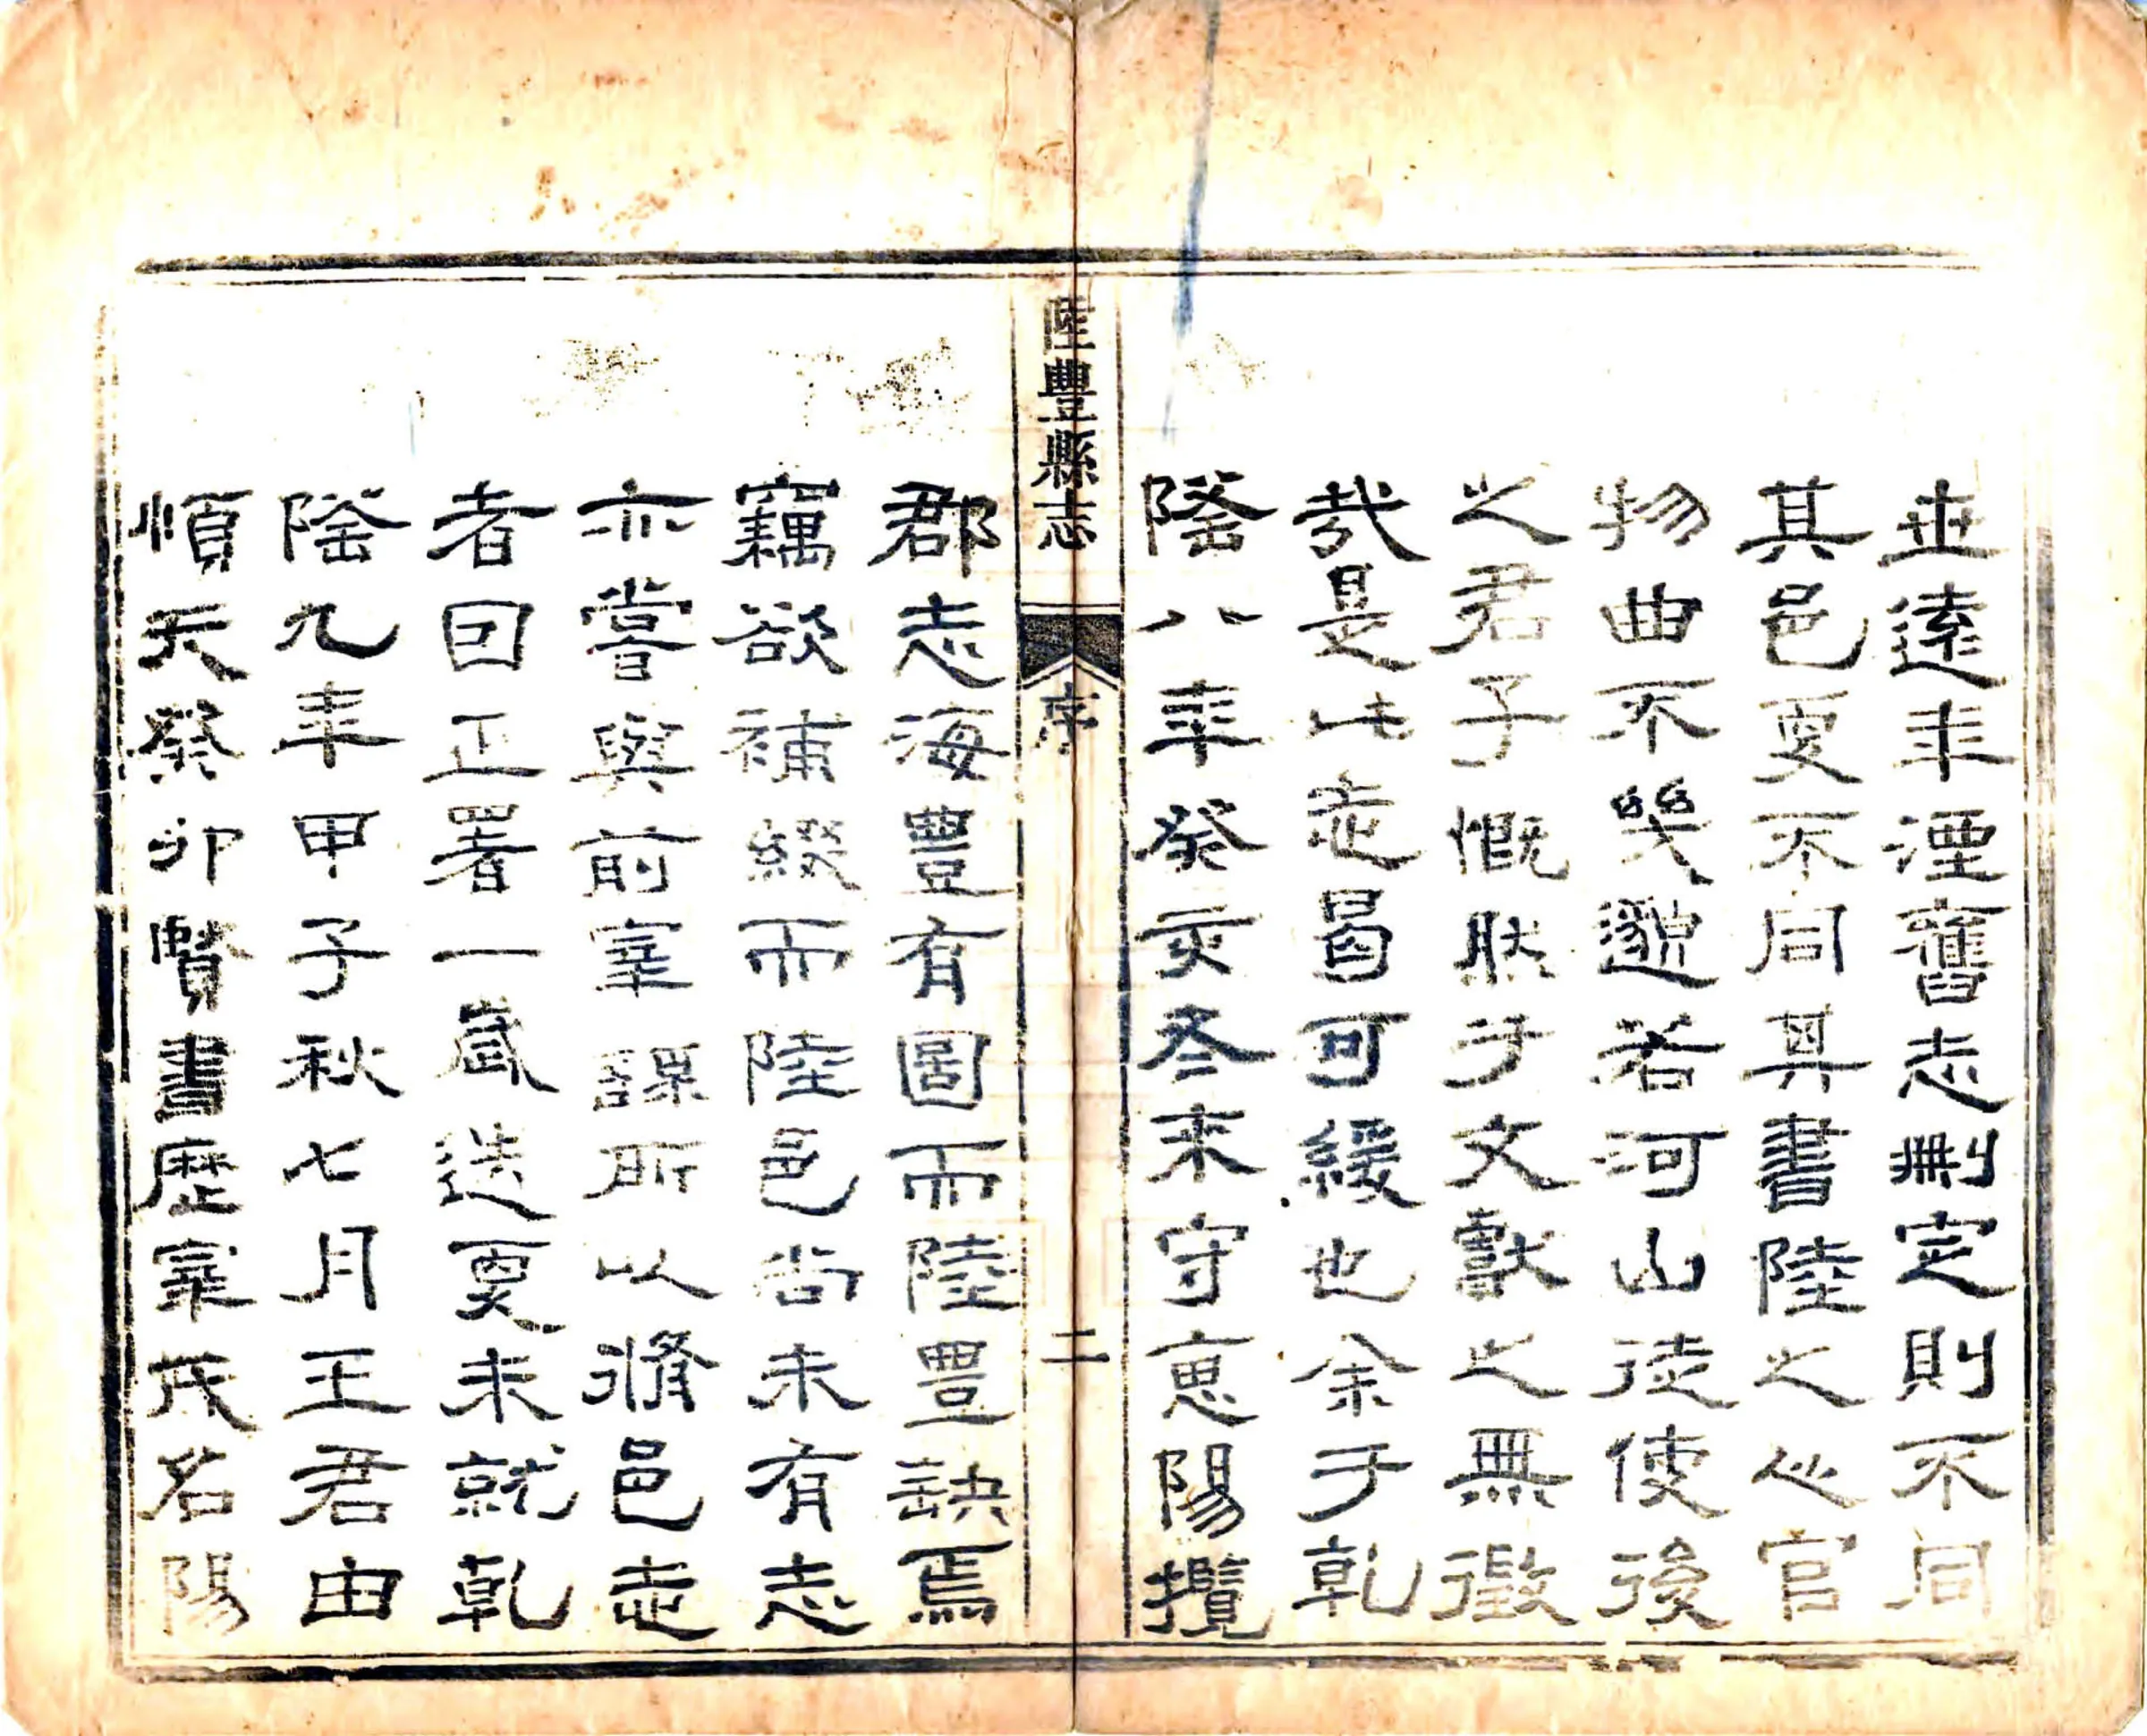 世遠年湮舊志刪定則不同
其邑更不同其書陸之必官
物曲不幾邈若河山徒使後
之君子慨然于文獻之無徵
哉是此志曷可緩也余于乾
隆八年癸亥冬來守惠陽攬
陸豐縣志
序
二
郡志海豐有圖而陸豐缺焉
竊欲補綴而陸邑尚未有志
亦嘗與前宰謀所以修邑志
者回正署一歲迭更未就乾
隆九年甲子秋七月王君由
順天癸卯賢書歷宰茂名陽